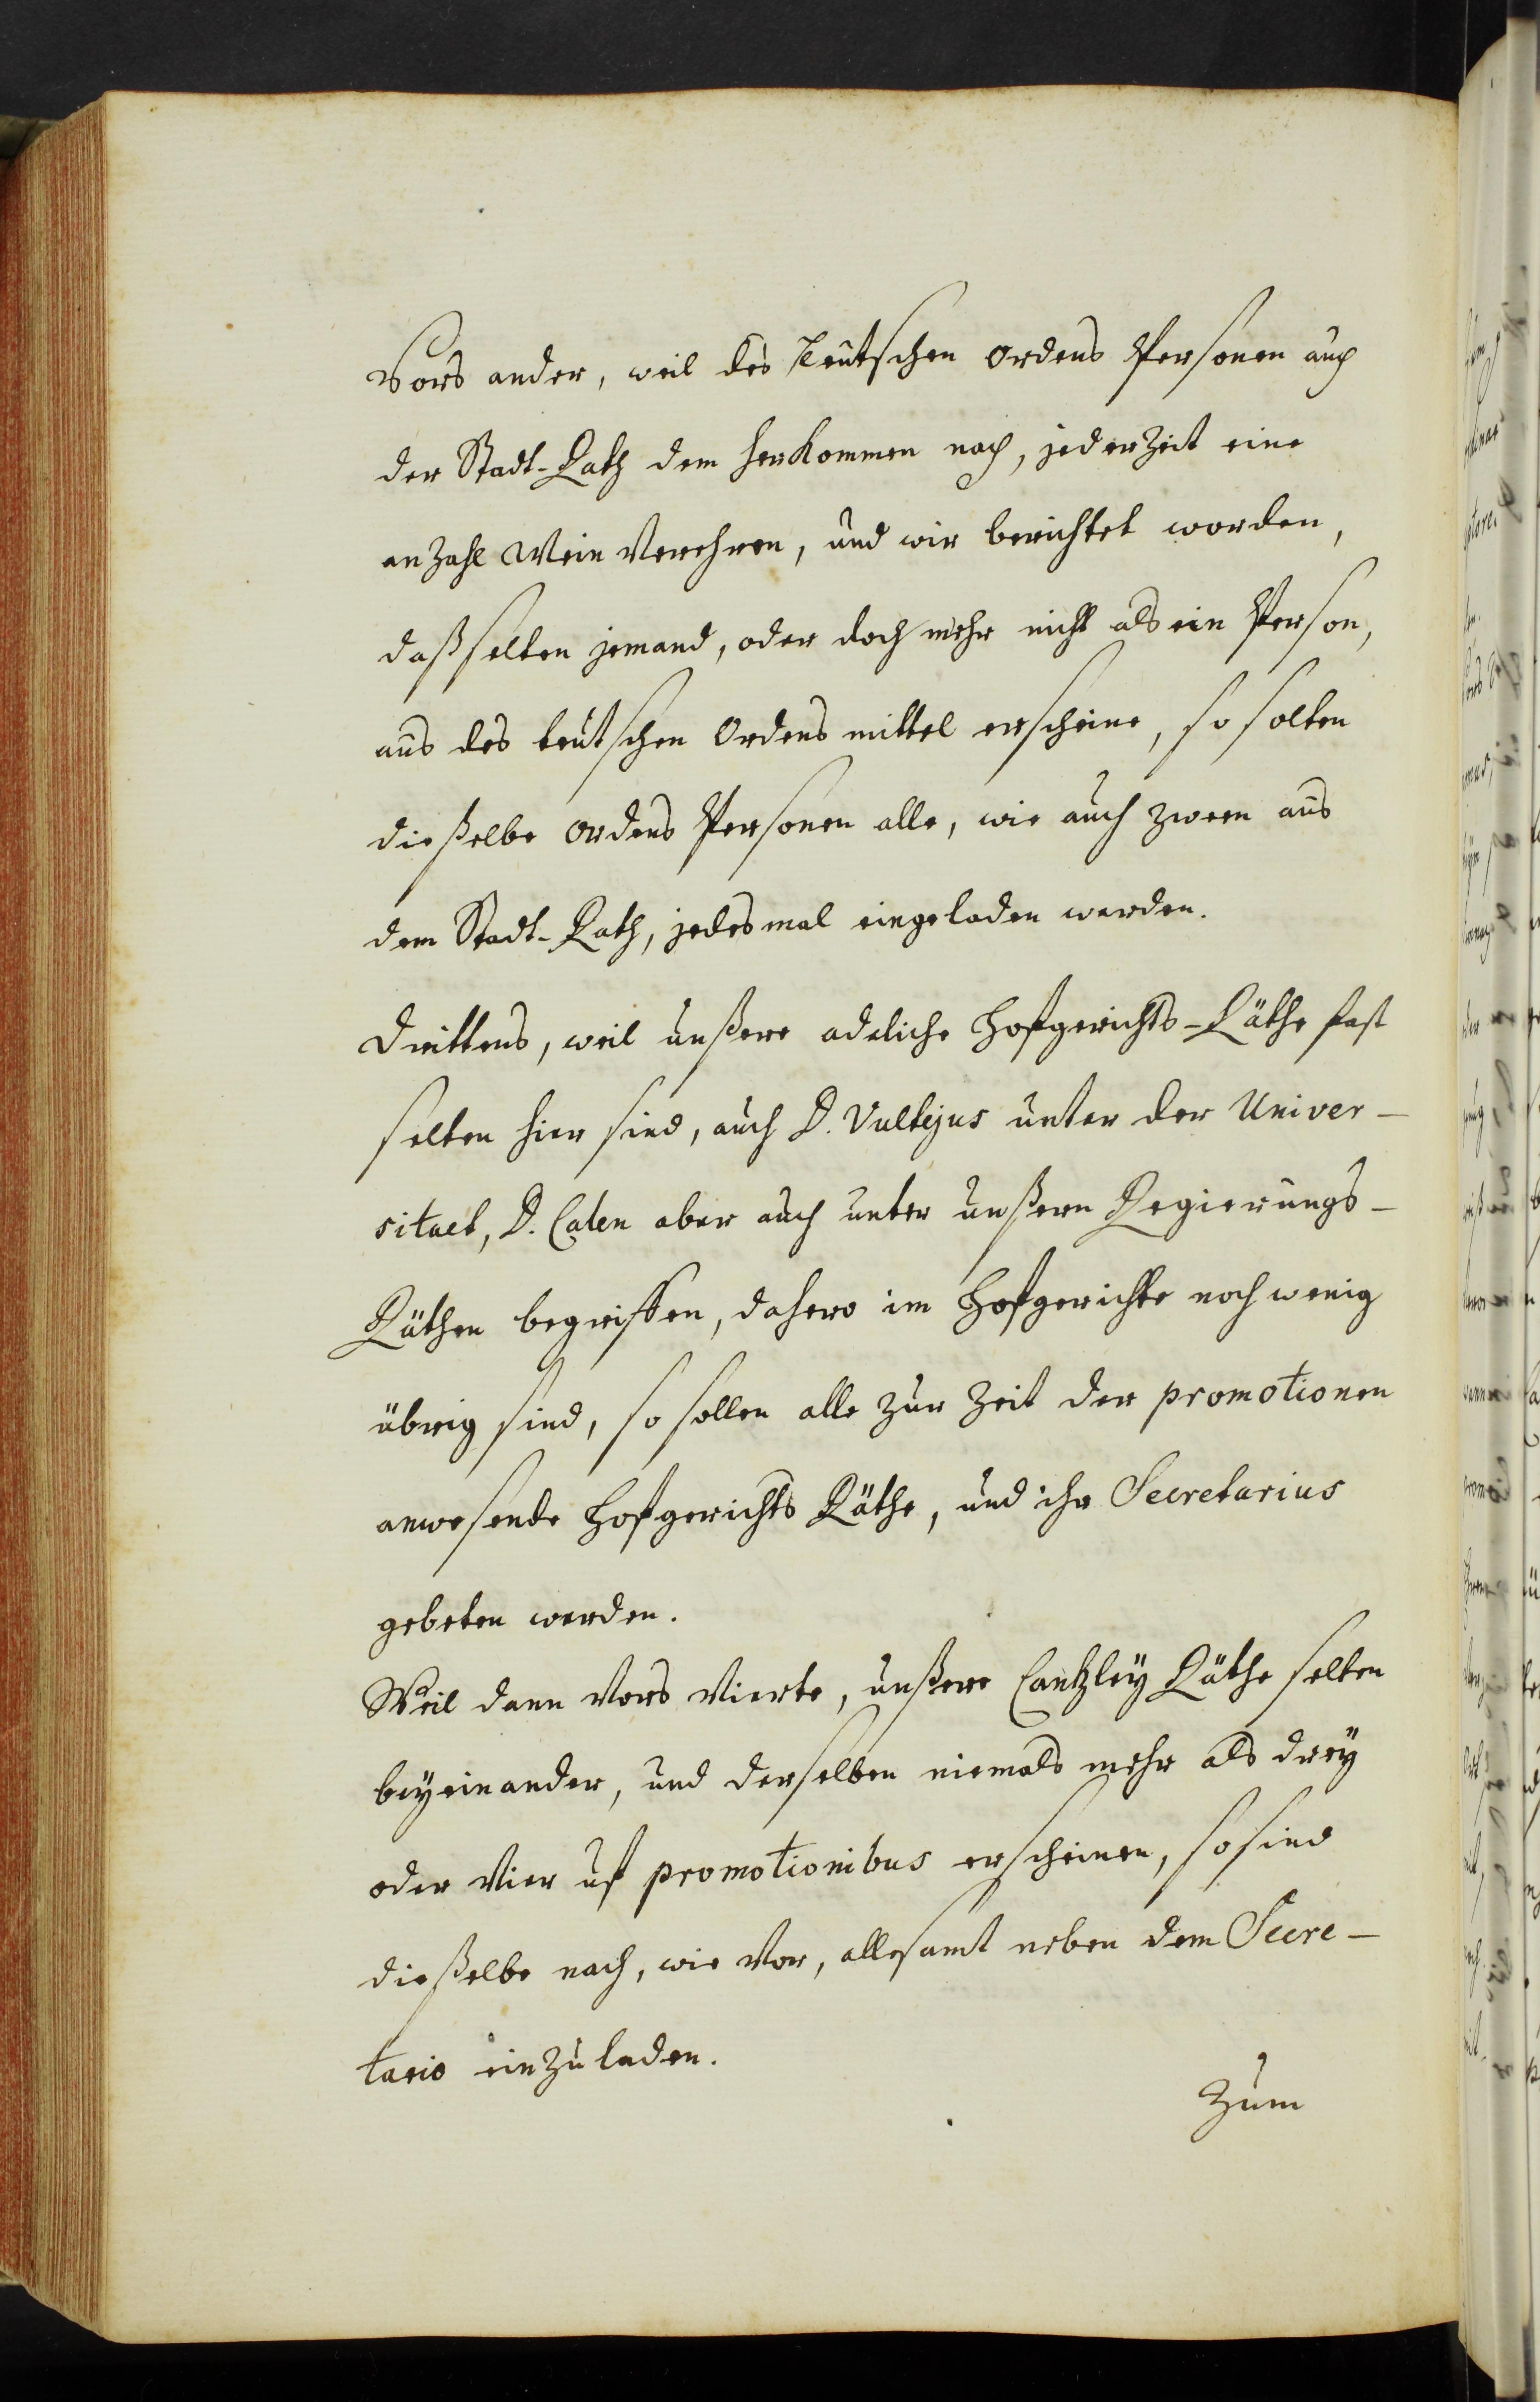 Vors ander, weil des Teutschen ordens Personen auch
der Stadt-Rath dem herkommen nach, jederzeit eine
anzahl Wein Verehren, und wir berichtet worden,
daß selten jemand, oder doch mehr nicht als ein Person,
aus des teutschen Ordens mittel erscheine, so solten
dieselbe ordens Personen alle, wie auch zween aus
dem Stadt-Rath, jedesmal eingeladen werden.
Drittens, weil unßere adeliche Hofgerichts-Räthe fast
selten hier sind, auch D. Vultejus unter der Univer-
sitaet, D. Calen aber auch unter unßern Regierungs-
Räthen begriffen, dahero im Hofgerichte noch wenig
übrig sind, so sollen alle zur Zeit der promotionen
anwesende Hofgerichts Räthe, und ihr Secretarius
gebeten werden.
Weil dann Vors Vierte, unßere Cantzley Räthe selten
beyeinander, und derselben niemals mehr als drey
oder Vier uf promotionibus erscheinen, so sind
dießelbe nach, wie Vor, allesamt neben dem Secre-
tario einzuladen.
Zum